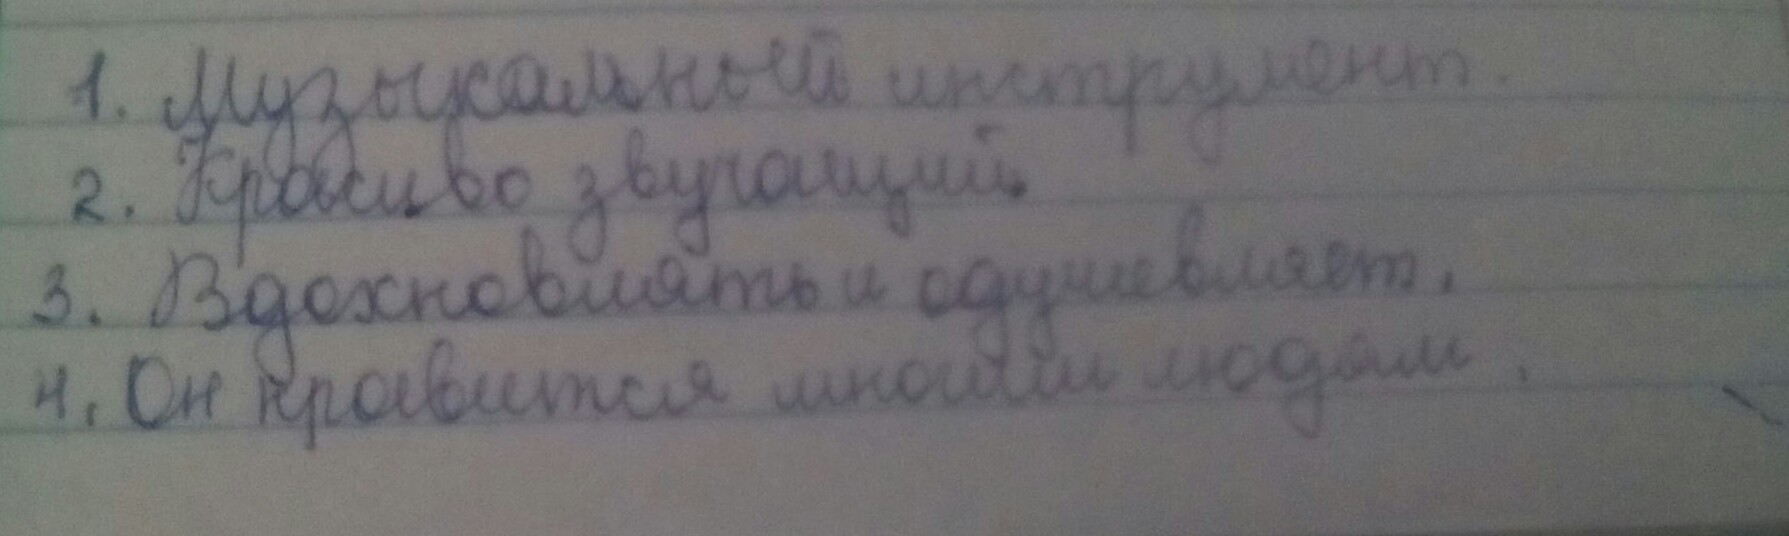 1. Музыкальный инструмент.
2. Красиво звучащий.
3. Вдохновлять и одушевляет.
4. Он нравится многим людям.